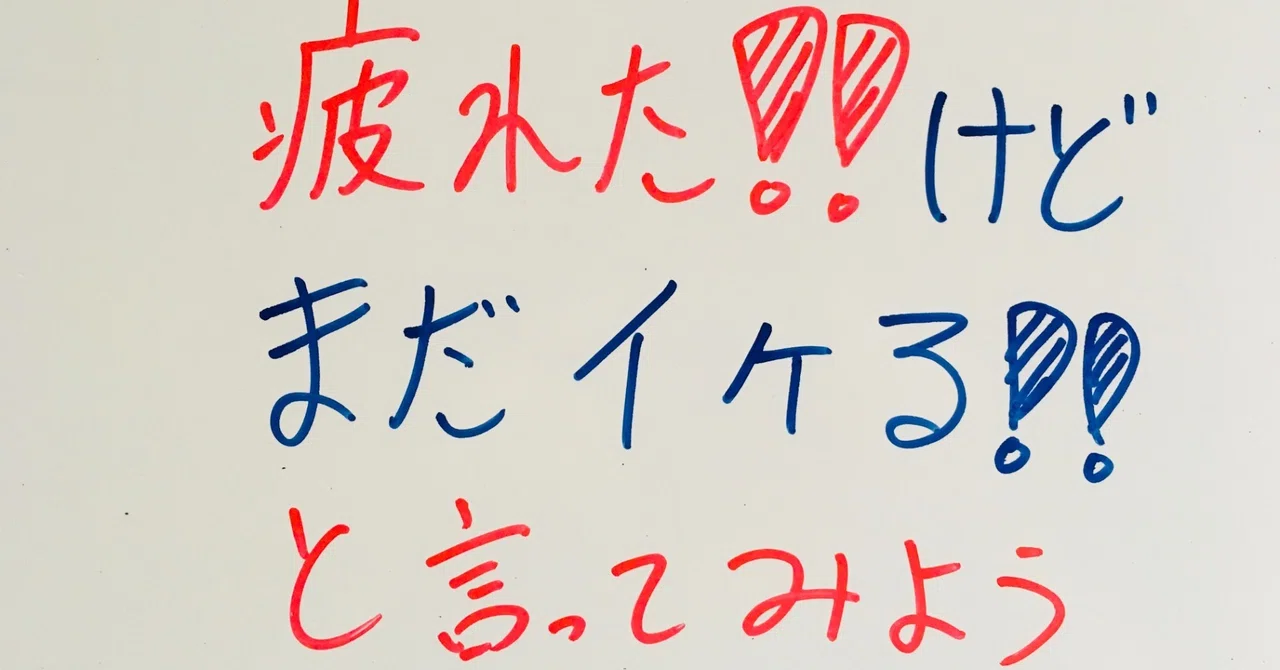 疲れた!!けど
まだイケる!!
と言ってみよう